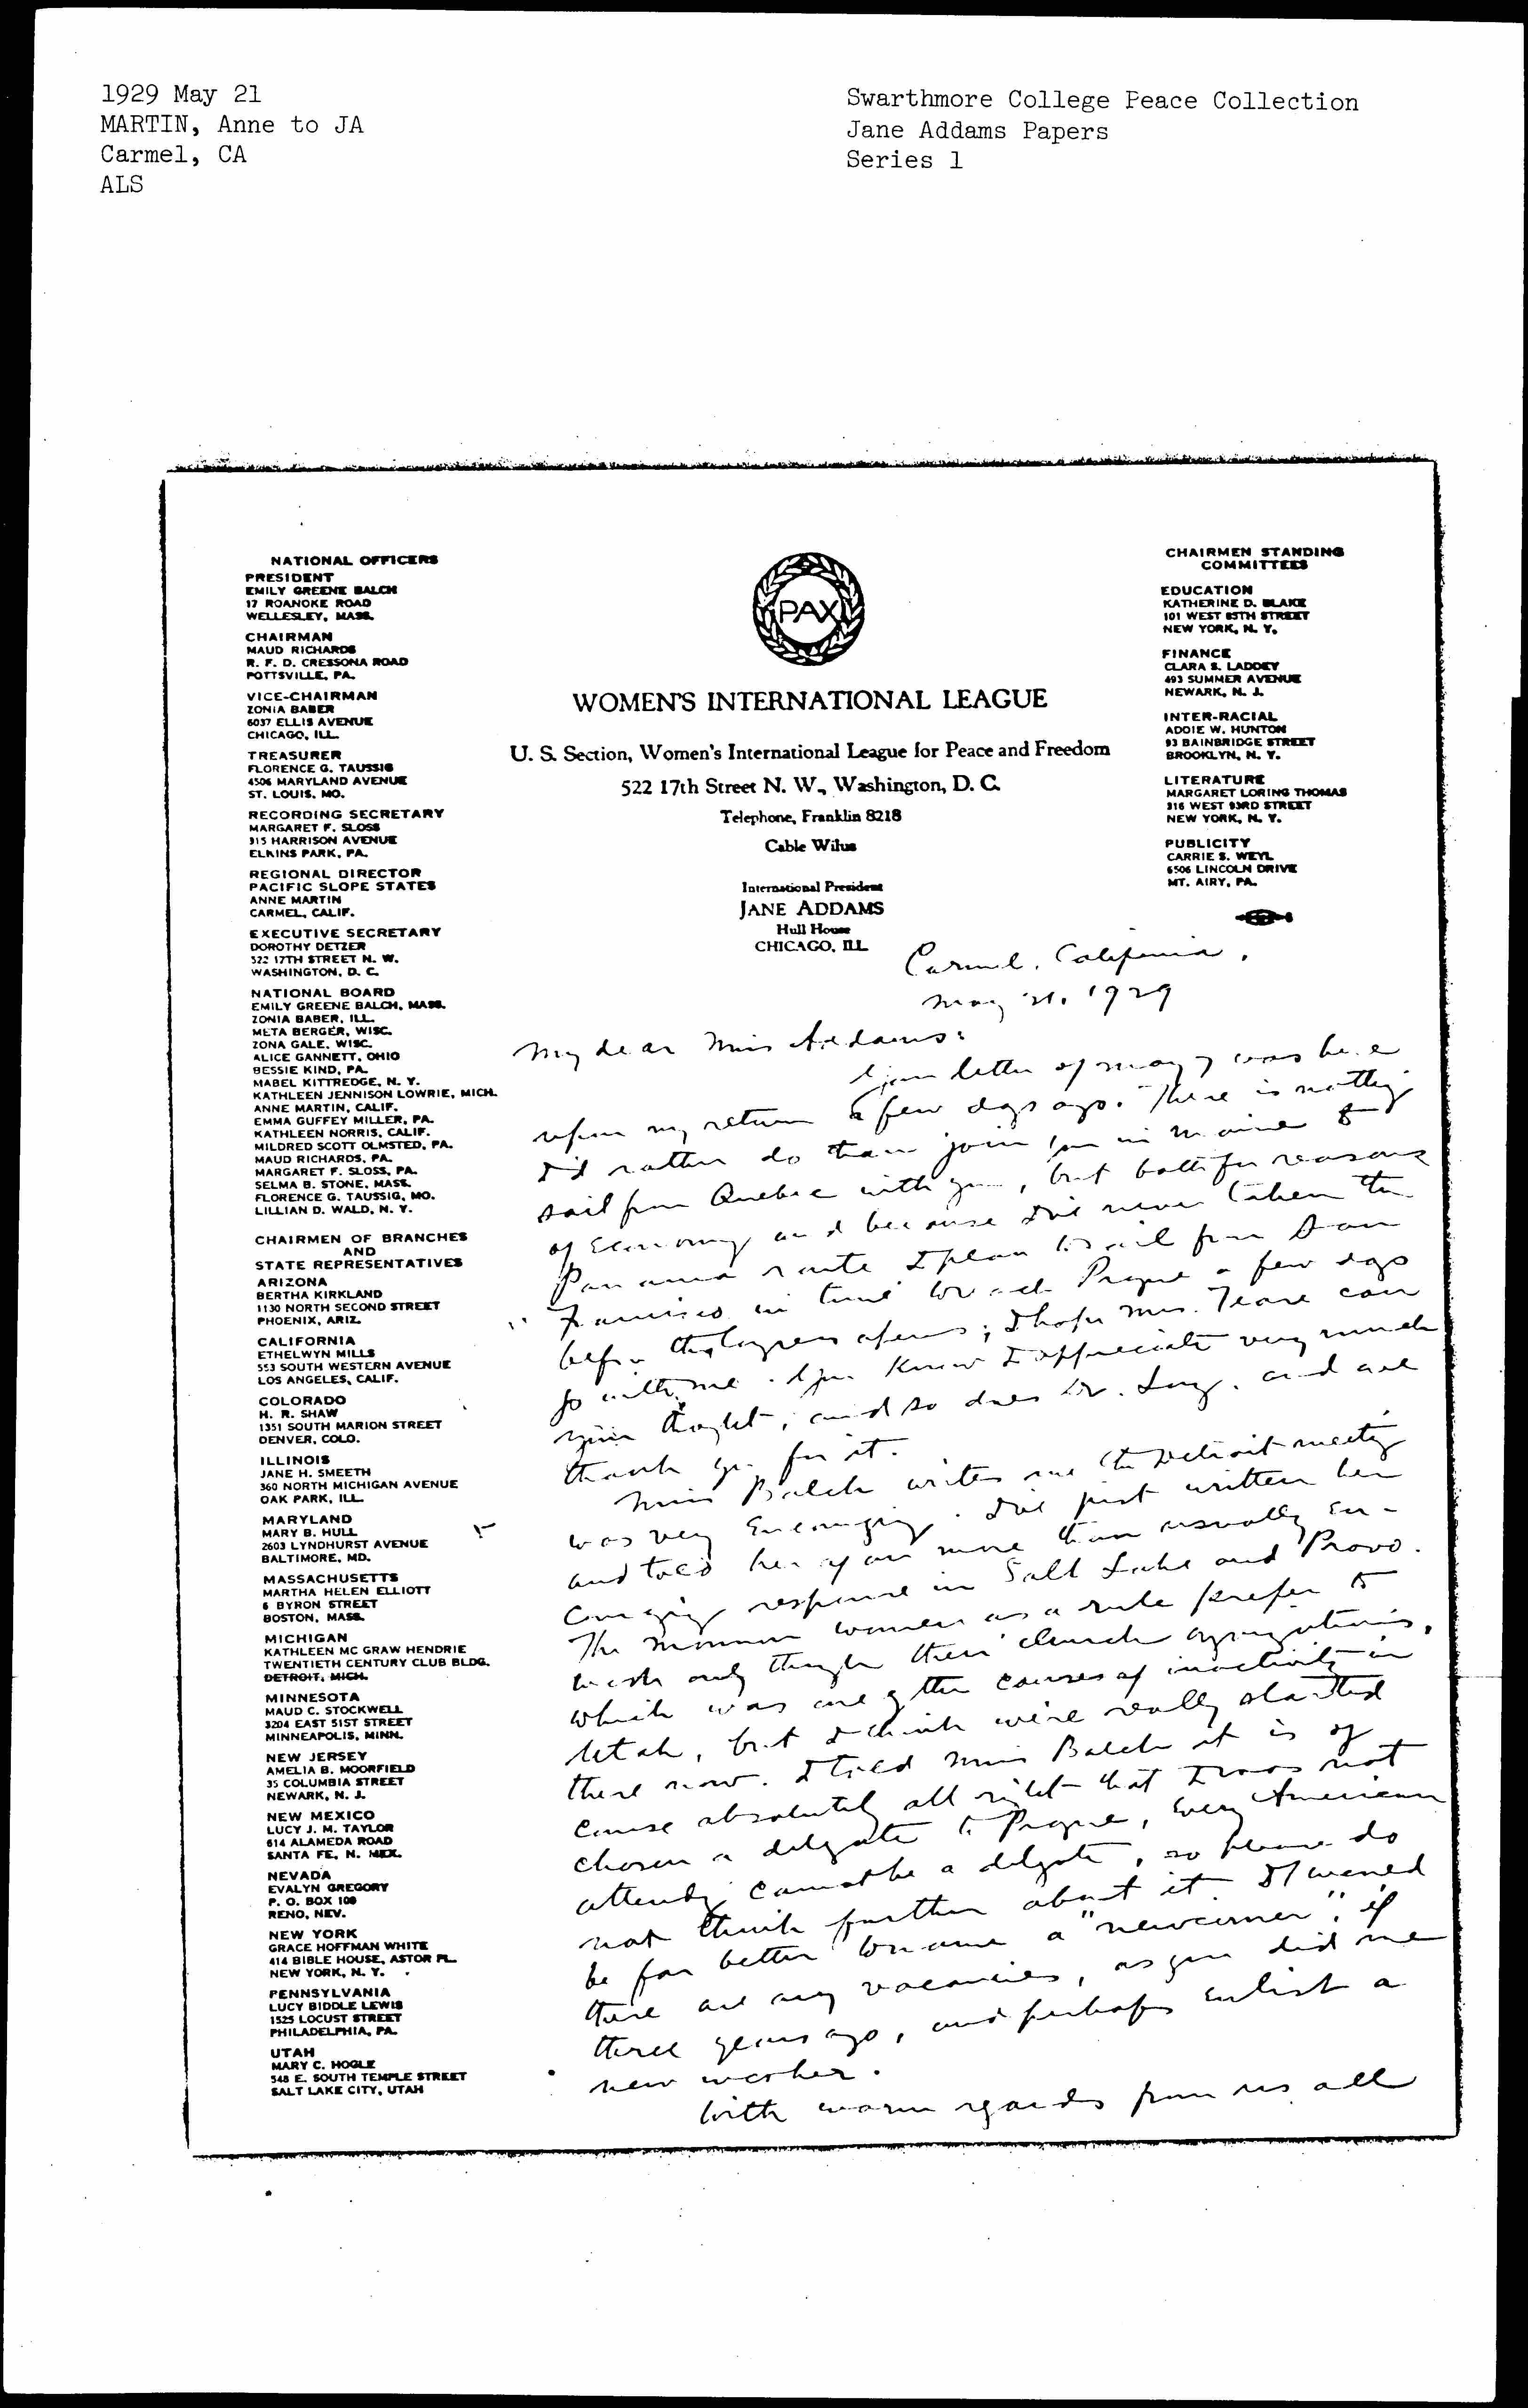 1929 May 21
MARTIN, Anne to JA
Carmel, CA
ALS
Swarthmore College Peace Collection
Jane Addams Papers
Series 1
NATIONAL OFFICERS
PRESIDENT
EMILY GREENE BALCH
17 ROANOKE ROAD
WELLESLEY, MASS.
CHAIRMAN
MAUD RICHARDS
R. F. D. CRESSONA ROAD
POTTSVILLE, PA.
VICE-CHAIRMAN
ZONIA BABER
6037 ELLIS AVENUE
CHICAGO, ILL.
TREASURER
FLORENCE G. TAUSSIG
4506 MARYLAND AVENUE
ST. LOUIS, MO.
RECORDING SECRETARY
MARGARET F. SLOSS
315 HARRISON AVENUE
ELKINS PARK, PA.
REGIONAL DIRECTOR
PACIFIC SLOPE STATES
ANNE MARTIN
CARMEL, CALIF.
EXECUTIVE SECRETARY
DOROTHY DETZER
522 17TH STREET N. W.
WASHINGTON, D. C.
NATIONAL BOARD
EMILY GREENE BALCH, MASS.
ZONIA BABER, ILL.
META BERGER, WISC.
ZONA GALE, WISC.
ALICE GANNETT, OHIO
BESSIE KIND, PA.
MABEL KITTREDGE, N. Y.
KATHLEEN JENNISON LOWRIE, MICH.
ANNE MARTIN, CALIF.
EMMA GUFFEY MILLER, PA.
KATHLEEN NORRIS, CALIF.
MILDRED SCOTT OLMSTED, PA.
MAUD RICHARDS, PA.
MARGARET F. SLOSS, PA.
SELMA B. STONE, MASS.
FLORENCE G. TAUSSIG, MO.
LILLIAN D. WALD, N. Y.
CHAIRMEN OF BRANCHES
AND
STATE REPRESENTATIVES
ARIZONA
BERTHA KIRKLAND
1130 NORTH SECOND STREET
PHOENIX, ARIZ.
CALIFORNIA
ETHELWYN MILLS
553 SOUTH WESTERN AVENUE
LOS ANGELES, CALIF.
COLORADO
H. R. SHAW
1351 SOUTH MARION STREET
DENVER, COLO.
ILLINOIS
JANE H. SMEETH
360 NORTH MICHIGAN AVENUE
OAK PARK, ILL.
MARYLAND
MARY B. HULL
2603 LYNDHURST AVENUE
BALTIMORE, MD.
MASSACHUSETTS
MARTHA HELEN ELLIOTT
6 BYRON STREET
BOSTON, MASS.
MICHIGAN
KATHLEEN MC GRAW HENDRIE
TWENTIETH CENTURY CLUB BLDG.
DETROIT, MICH.
MINNESOTA
MAUD C. STOCKWELL
3204 EAST 51ST STREET
MINNEAPOLIS, MINN.
NEW JERSEY
AMELIA B. MOORFIELD
35 COLUMBIA STREET
NEWARK, N. J.
NEW MEXICO
LUCY J. M. TAYLOR
614 ALAMEDA ROAD
SANTA FE, N. MEX.
NEVADA
EVALYN GREGORY
P. O. BOX 108
RENO, NEV.
NEW YORK
GRACE HOFFMAN WHITE
414 BIBLE HOUSE, ASTOR PL.
NEW YORK, N. Y.
PENNSYLVANIA
LUCY BIDDLE LEWIS
1525 LOCUST STREET
PHILADELPHIA, PA.
UTAH
MARY C. HOGLE
548 E. SOUTH TEMPLE STREET
SALT LAKE CITY, UTAH
PAX
WOMEN'S INTERNATIONAL LEAGUE
U. S. Section, Women's International League for Peace and Freedom
522 17th Street N. W., Washington, D. C.
Telephone, Franklin 8218
Cable Wilus
International President
JANE ADDAMS
Hull House
CHICAGO, ILL.
CHAIRMEN STANDING
COMMITTEES
EDUCATION
KATHERINE D. BLAKE
101 WEST 85TH STREET
NEW YORK, N. Y.
FINANCE
CLARA S. LADDEY
493 SUMMER AVENUE
NEWARK, N. J.
INTER-RACIAL
ADDIE W. HUNTON
93 BAINBRIDGE STREET
BROOKLYN, N. Y.
LITERATURE
MARGARET LORING THOMAS
316 WEST 93RD STREET
NEW YORK, N. Y.
PUBLICITY
CARRIE S. WEYL
6506 LINCOLN DRIVE
MT. AIRY, PA.
Carmel, California,
May 21, 1929
My dear Miss Addams:
Your letter of May 7 was here
upon my return a few days ago. There is nothing
I'd rather do than join you in Maine &
sail from Quebec with you, but both for reasons
of economy and because I've never taken the
Panama route I plan to sail from San
Francisco in time to reach Prague a few days
before the Congress opens; I hope Mrs. Teare can
go with me. You know I appreciate very much
your thought, and so does Dr. Long, and we
thank you for it.
Miss Balch writes me the Detroit meeting
was very encouraging. I've just written her
and told her of our more than usually en-
couraging response in Salt Lake and Provo.
The Mormon women as a rule prefer to
work only through their church organizations,
which was one of the causes of inactivity in
Utah, but I think we're really started
there now. I told Miss Balch it is of
course absolutely all right that I was not
chosen a delegate to Prague, every American
attending cannot be a delegate, so please do
not think further about it. It would
be far better to name a "newcomer", if
there are any vacancies, as you did me
three years ago, and perhaps enlist a
new worker.
With warm regards from us all